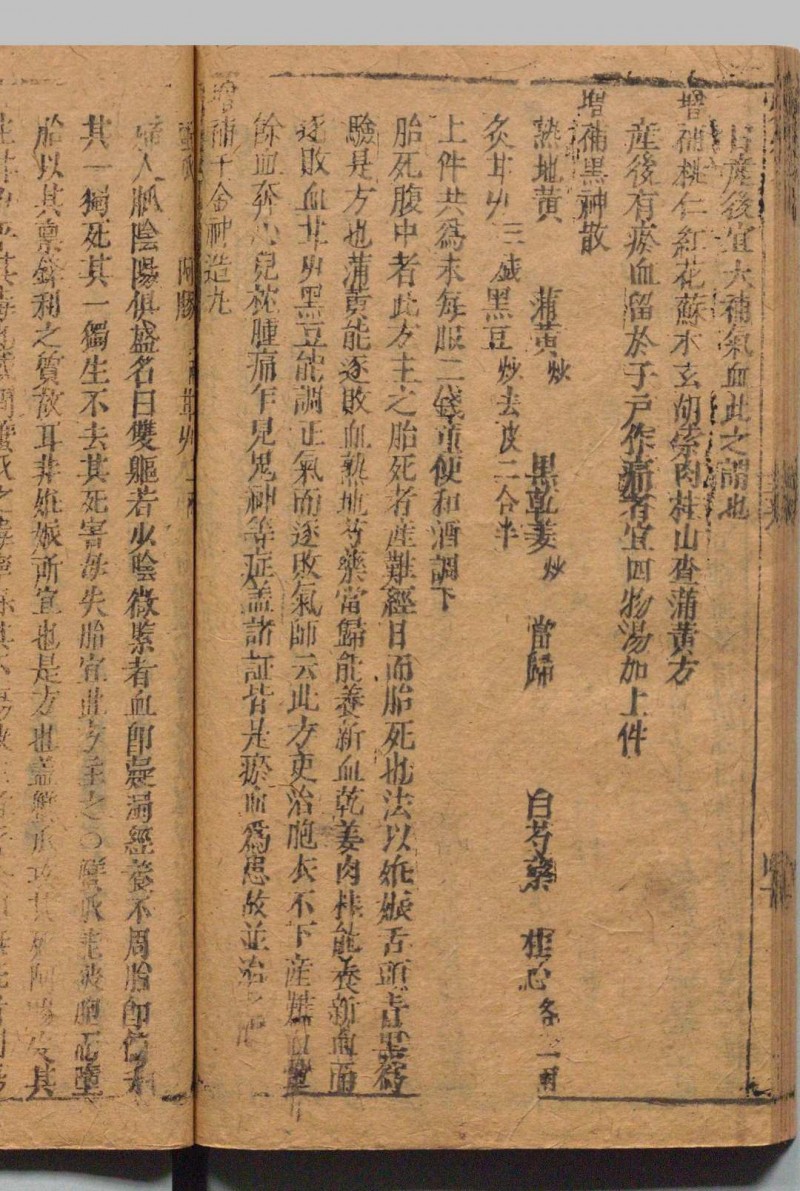 產後宜大補氣血此之謂也
增補桃仁紅花蘇木玄胡索肉桂山查蒲黃方
產後有瘀血留於子戶作痛者宜四物湯加上件
增補黑神散
熟地黃 蒲黃炒 黑乾姜炒 當歸 白芍藥 桂心各一兩
炙甘艸三錢黑豆炒去皮二合半
上件共為末每服二錢童便和酒調下
胎死腹中者此方主之胎死者產難經日而胎死也法以姙娠舌頭青黑為
驗是方也蒲黃能逐敗血熟地芍藥當歸能養新血乾姜肉桂能養新血而
逐敗血甘艸黑豆能調正氣而逐敗氣師云此方更治胞衣不下產
餘血奔心兒枕腫痛乍見鬼神等症盖諸証皆是瘀血為患故並治之
增補千金神造丸
阿膠
婦人脈陰陽俱盛名曰雙軀若少陰微緊者血即凝濁經養不周胎即偏夭
其一獨死其一獨生不去其死害母失胎宜此方主之〇蟹爪能破胞而墮
胎以其禀鋒利之質故耳非姙娠所宜也是方也盖蟹爪攻其死阿膠安其